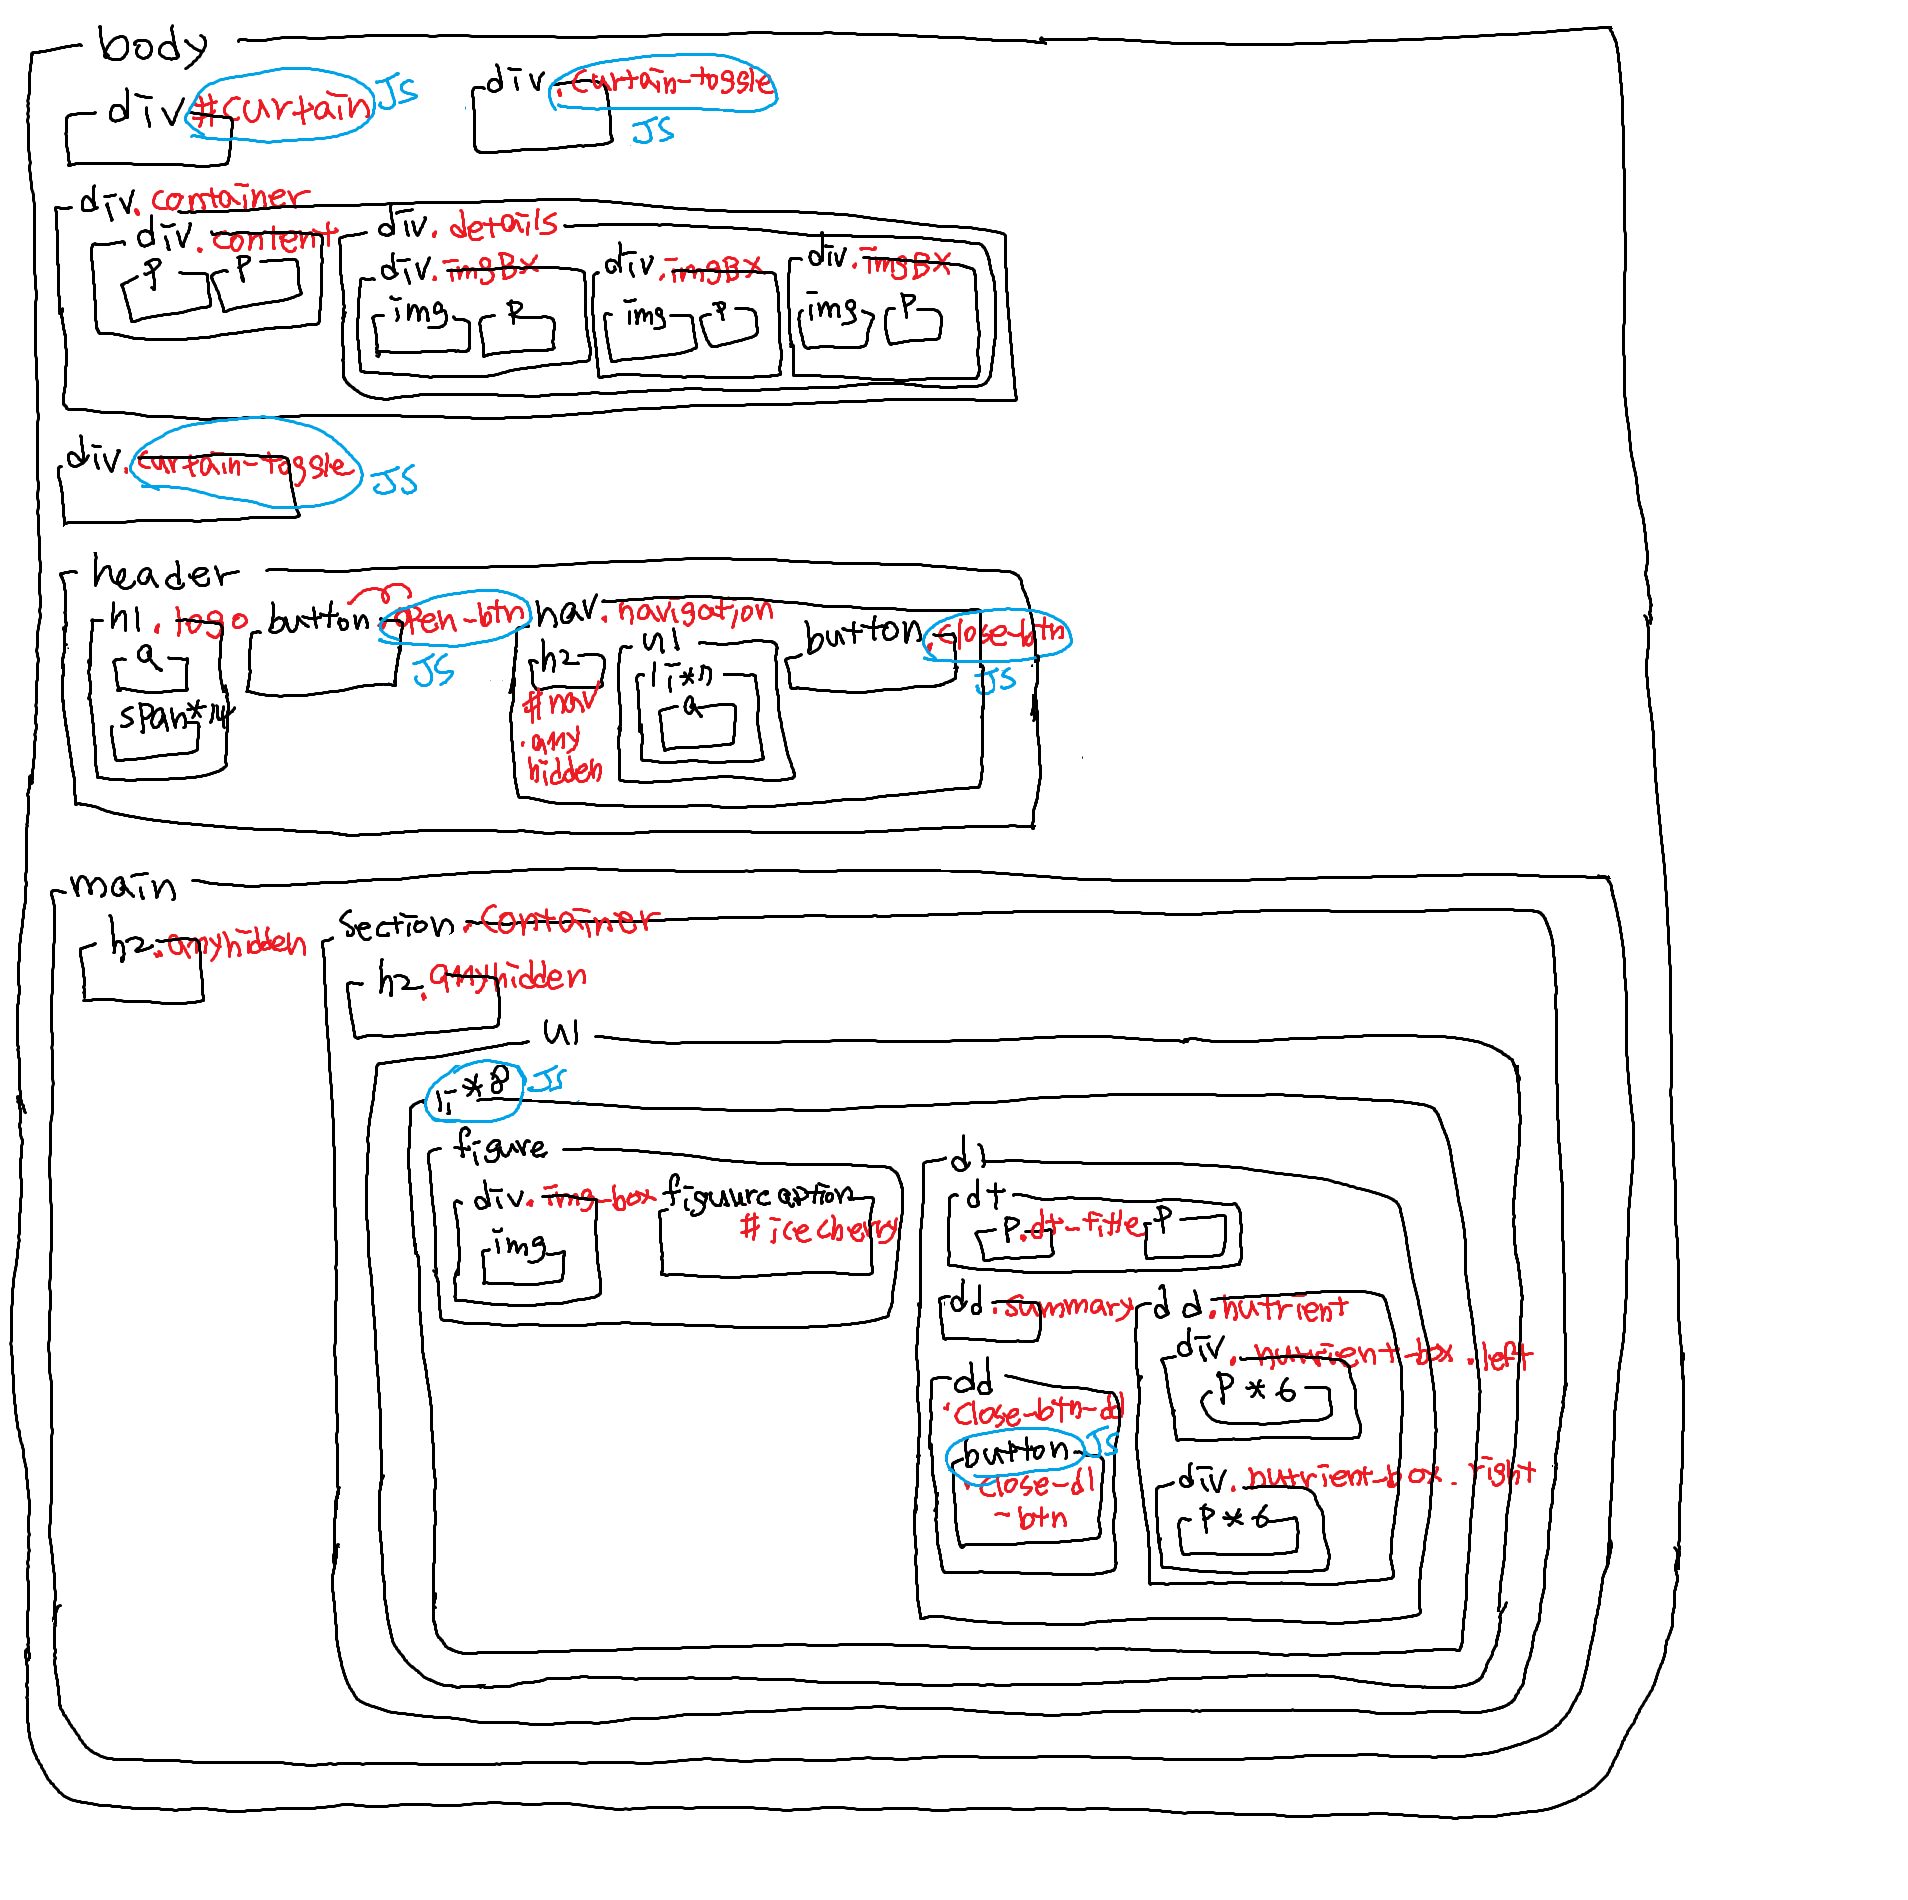 body
div #curtain JS
div .curtain-toggle
JS
div.container
div.content
p p
div.details
div.imgBx div.imgBx div.imgBx
img p img p img p
div.curtain-toggle JS
header
h1.logo button .open-btn nav.navigation
JS
a
span*
h2
#nav
.any
hidden
ul
li*n
a
button.close-btn
JS
main
h2.anyhidden
section.container
h2.anyhidden
ul
li*8 JS
figure
div.img-box figurecaption
#icecherry
img
dl
dt
p.dt-title p
dd.summary
dd.nutrient
div.nutrient-box.left
p*6
dd
.close-btn-dd
button JS
.close-dl
-btn
div.nutrient-box.right
p*6